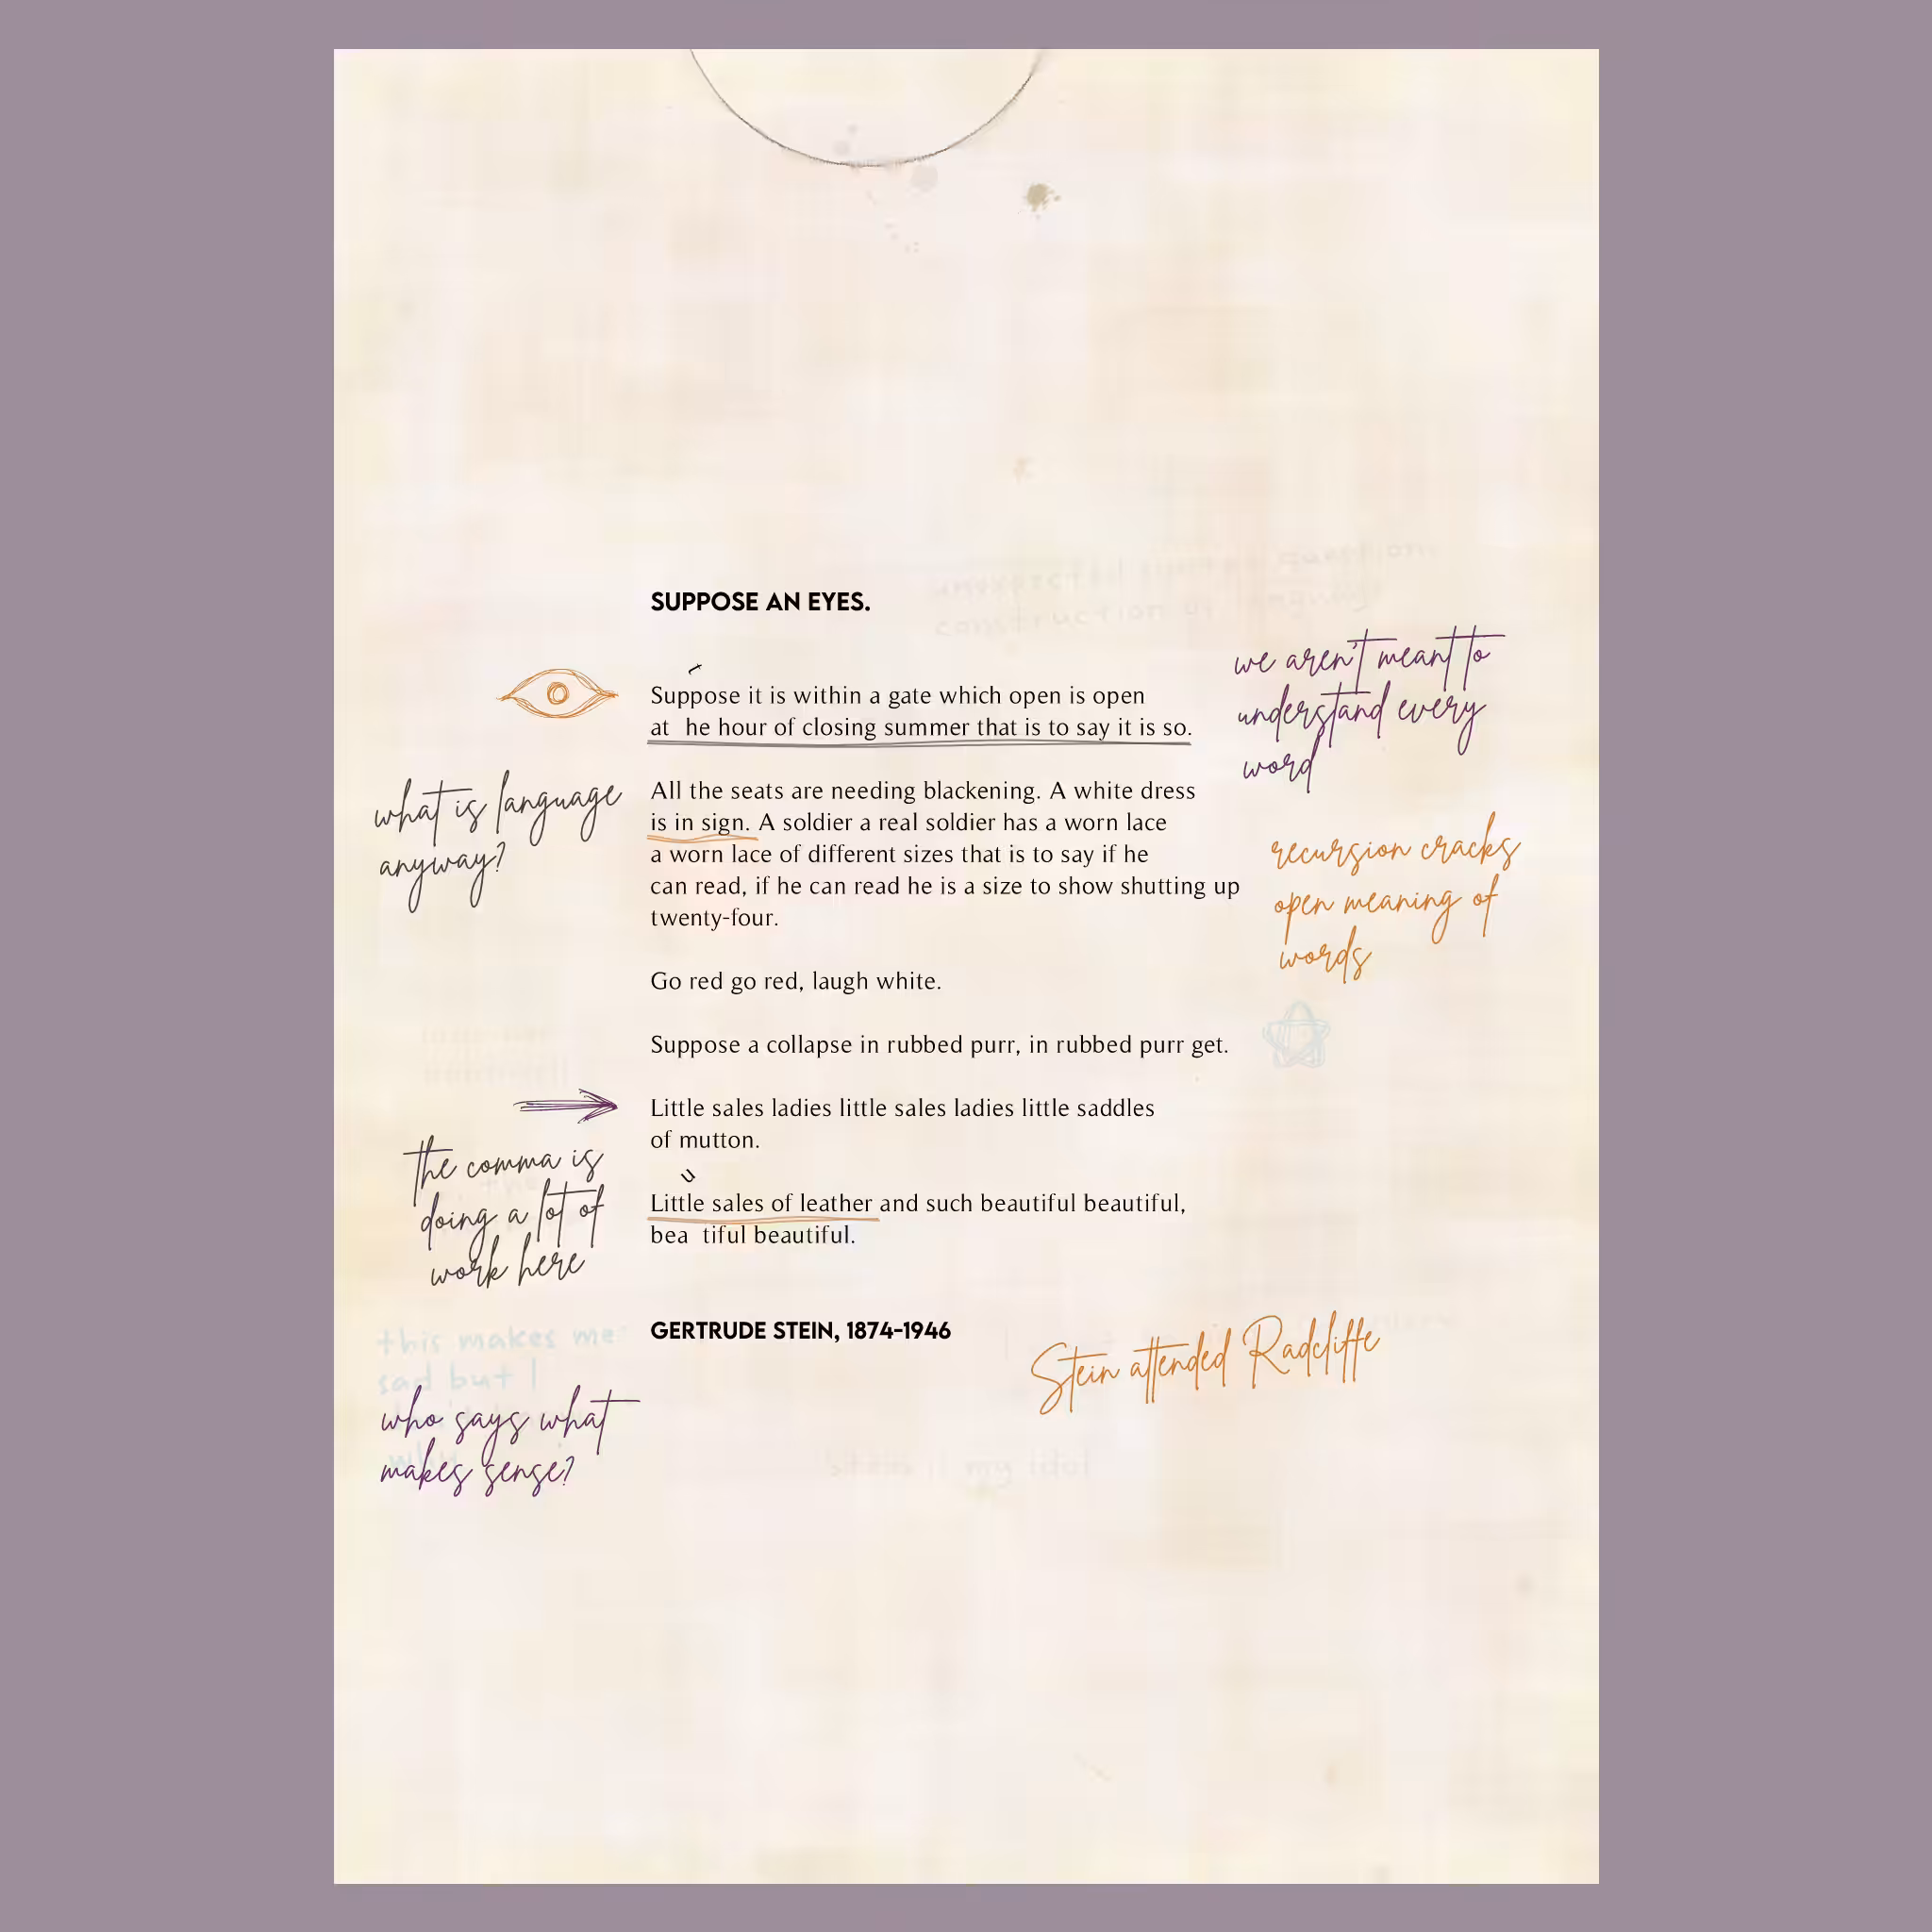 SUPPOSE AN EYES.
Suppose it is within a gate which open is open
at he hour of closing summer that is to say it is so.
All the seats are needing blackening. A white dress
is in sign. A soldier a real soldier has a worn lace
a worn lace of different sizes that is to say if he
can read, if he can read he is a size to show shutting up
twenty-four.
Go red go red, laugh white.
Suppose a collapse in rubbed purr, in rubbed purr get.
Little sales ladies little sales ladies little saddles
of mutton.
u
Little sales of leather and such beautiful beautiful,
bea tiful beautiful.
GERTRUDE STEIN, 1874-1946
we aren't meant to
understand every
word
what is language
anyway?
recursion cracks
open meaning of
words
the comma is
doing a lot of
work here
this makes me
sad but I
who says what
makes sense?
Stein attended Radcliffe
my idol
construction of